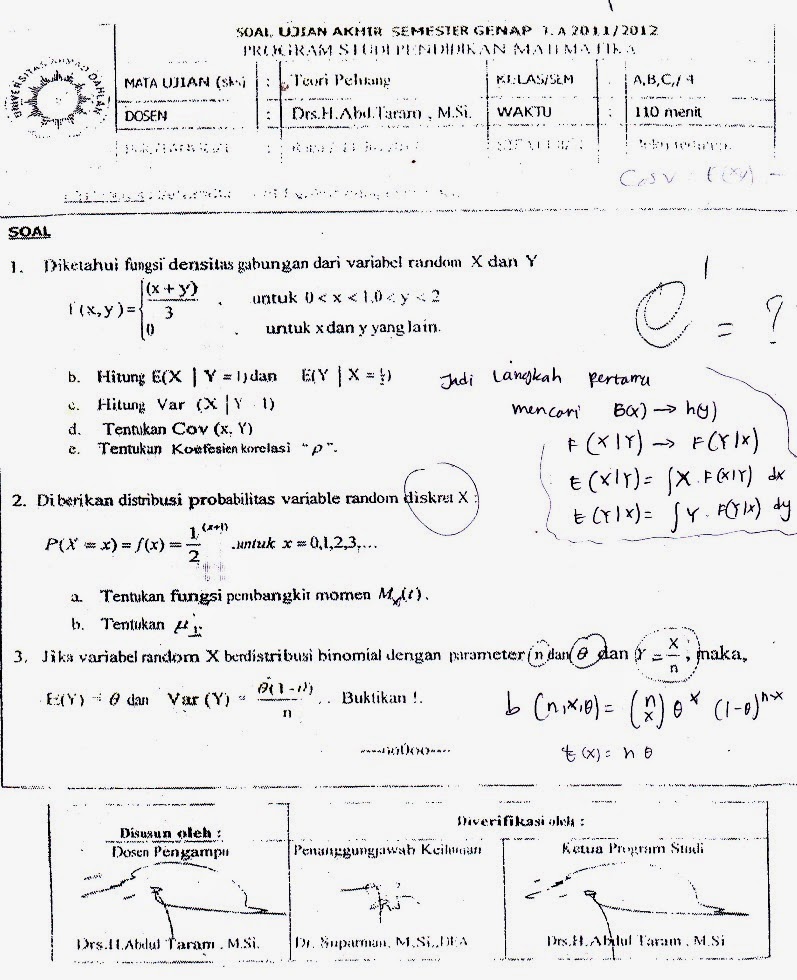 UNIVERSITAS AHMAD DAHLAN
SOAL UJIAN AKHIR SEMESTER GENAP T.A 2011/2012
PROGRAM STUDI PENDIDIKAN MATEMATIKA
MATA UJIAN (sks) : Teori Peluang KELAS/SEM A,B,C,/ 4
DOSEN : Drs.H.Abd.Taram , M.Si. WAKTU : 110 menit
SOAL
1. Diketahui fungsi densitas gabungan dari variabel random X dan Y
f (x,y) = { (x + y)/3 , untuk 0 < x < 1,0 < y < 2
0 , untuk x dan y yang lain.
= ?
b. Hitung E(X | Y = 1) dan E(Y | X = ½)
Jadi Langkah pertama
c. Hitung Var (X | Y 1)
mencari → h(y)
d. Tentukan Cov (x, Y)
F (X|Y) → F(Y|X)
e. Tentukan Koefesien korelasi “ρ”.
E (X|Y) = ∫X . F(X|Y) dx
E (Y|X) = ∫Y . F(Y|X) dy
2. Diberikan distribusi probabilitas variable random diskret X :
P(X = x) = f(x) = 1/2 (x+1) .untuk x = 0,1,2,3,...
a. Tentukan fungsi pembangkit momen Mx(t).
b. Tentukan
3. Jika variabel random X berdistribusi binomial dengan parameter n dan θ dan Y = X/n , maka,
E(Y) = θ dan Var (Y) = θ(1-θ)/n . Buktikan !.
b (n,x,θ) = (n x) θ^x (1-θ)^n-x
E(x) = n θ
----ooOoo----
Disusun oleh :
Dosen Pengampu
Drs.H.Abdul Taram , M.Si.
Diverifikasi oleh :
Penanggungjawab Keilmuan
Dr. Suparman, M.Si.,DEA
Ketua Program Studi
Drs.H.Abdul Taram , M.Si